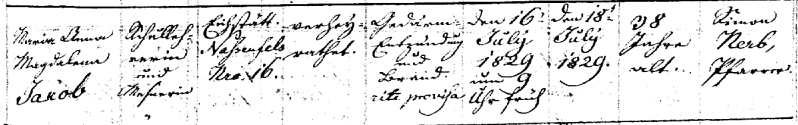 Maria Anna Magdalena Jakob
Schullehrerin und Meßnerin
Eichstätt. Nassenfels Nro. 16.
verheyrathet.
Gedärm-Entzündung und Brand rite provisa
den 16t July 1829 um 9 Uhr früh
den 18t July 1829.
38 Jahre alt.
Simon Nerb, Pfarrer